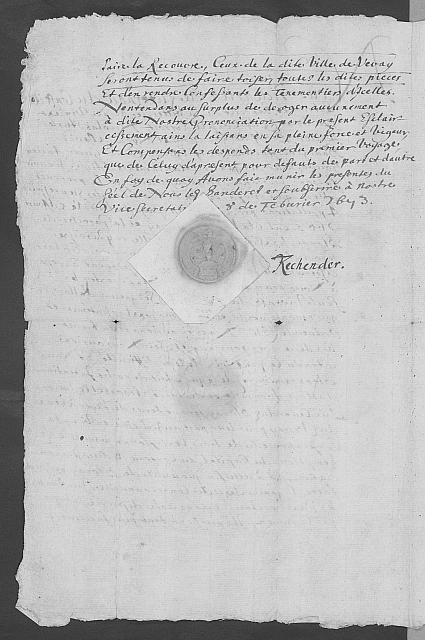 faire la Recouvre, Ceux de la dite Ville de Vevay
seront tenus de faire toiser toutes les dites pieces
Et d'en rendre Confessants les tenementiers d'icelles.
N'entendans au surplus de deroger aucunement
à dite Nostre Prononciation par le present Esclair-
cissement, ains la laissans en sa pleine force et Vigeur
Et Compensans les despends tant du premier Voyage,
que de Celuy d'apresent pour defauts de part et d'autre
En foy de quoy Avons fait munir les presentes du
Séel de Nos le Banderet et soubsigner à nostre
Vice Secretai 8 de Febvrier
Rechender.